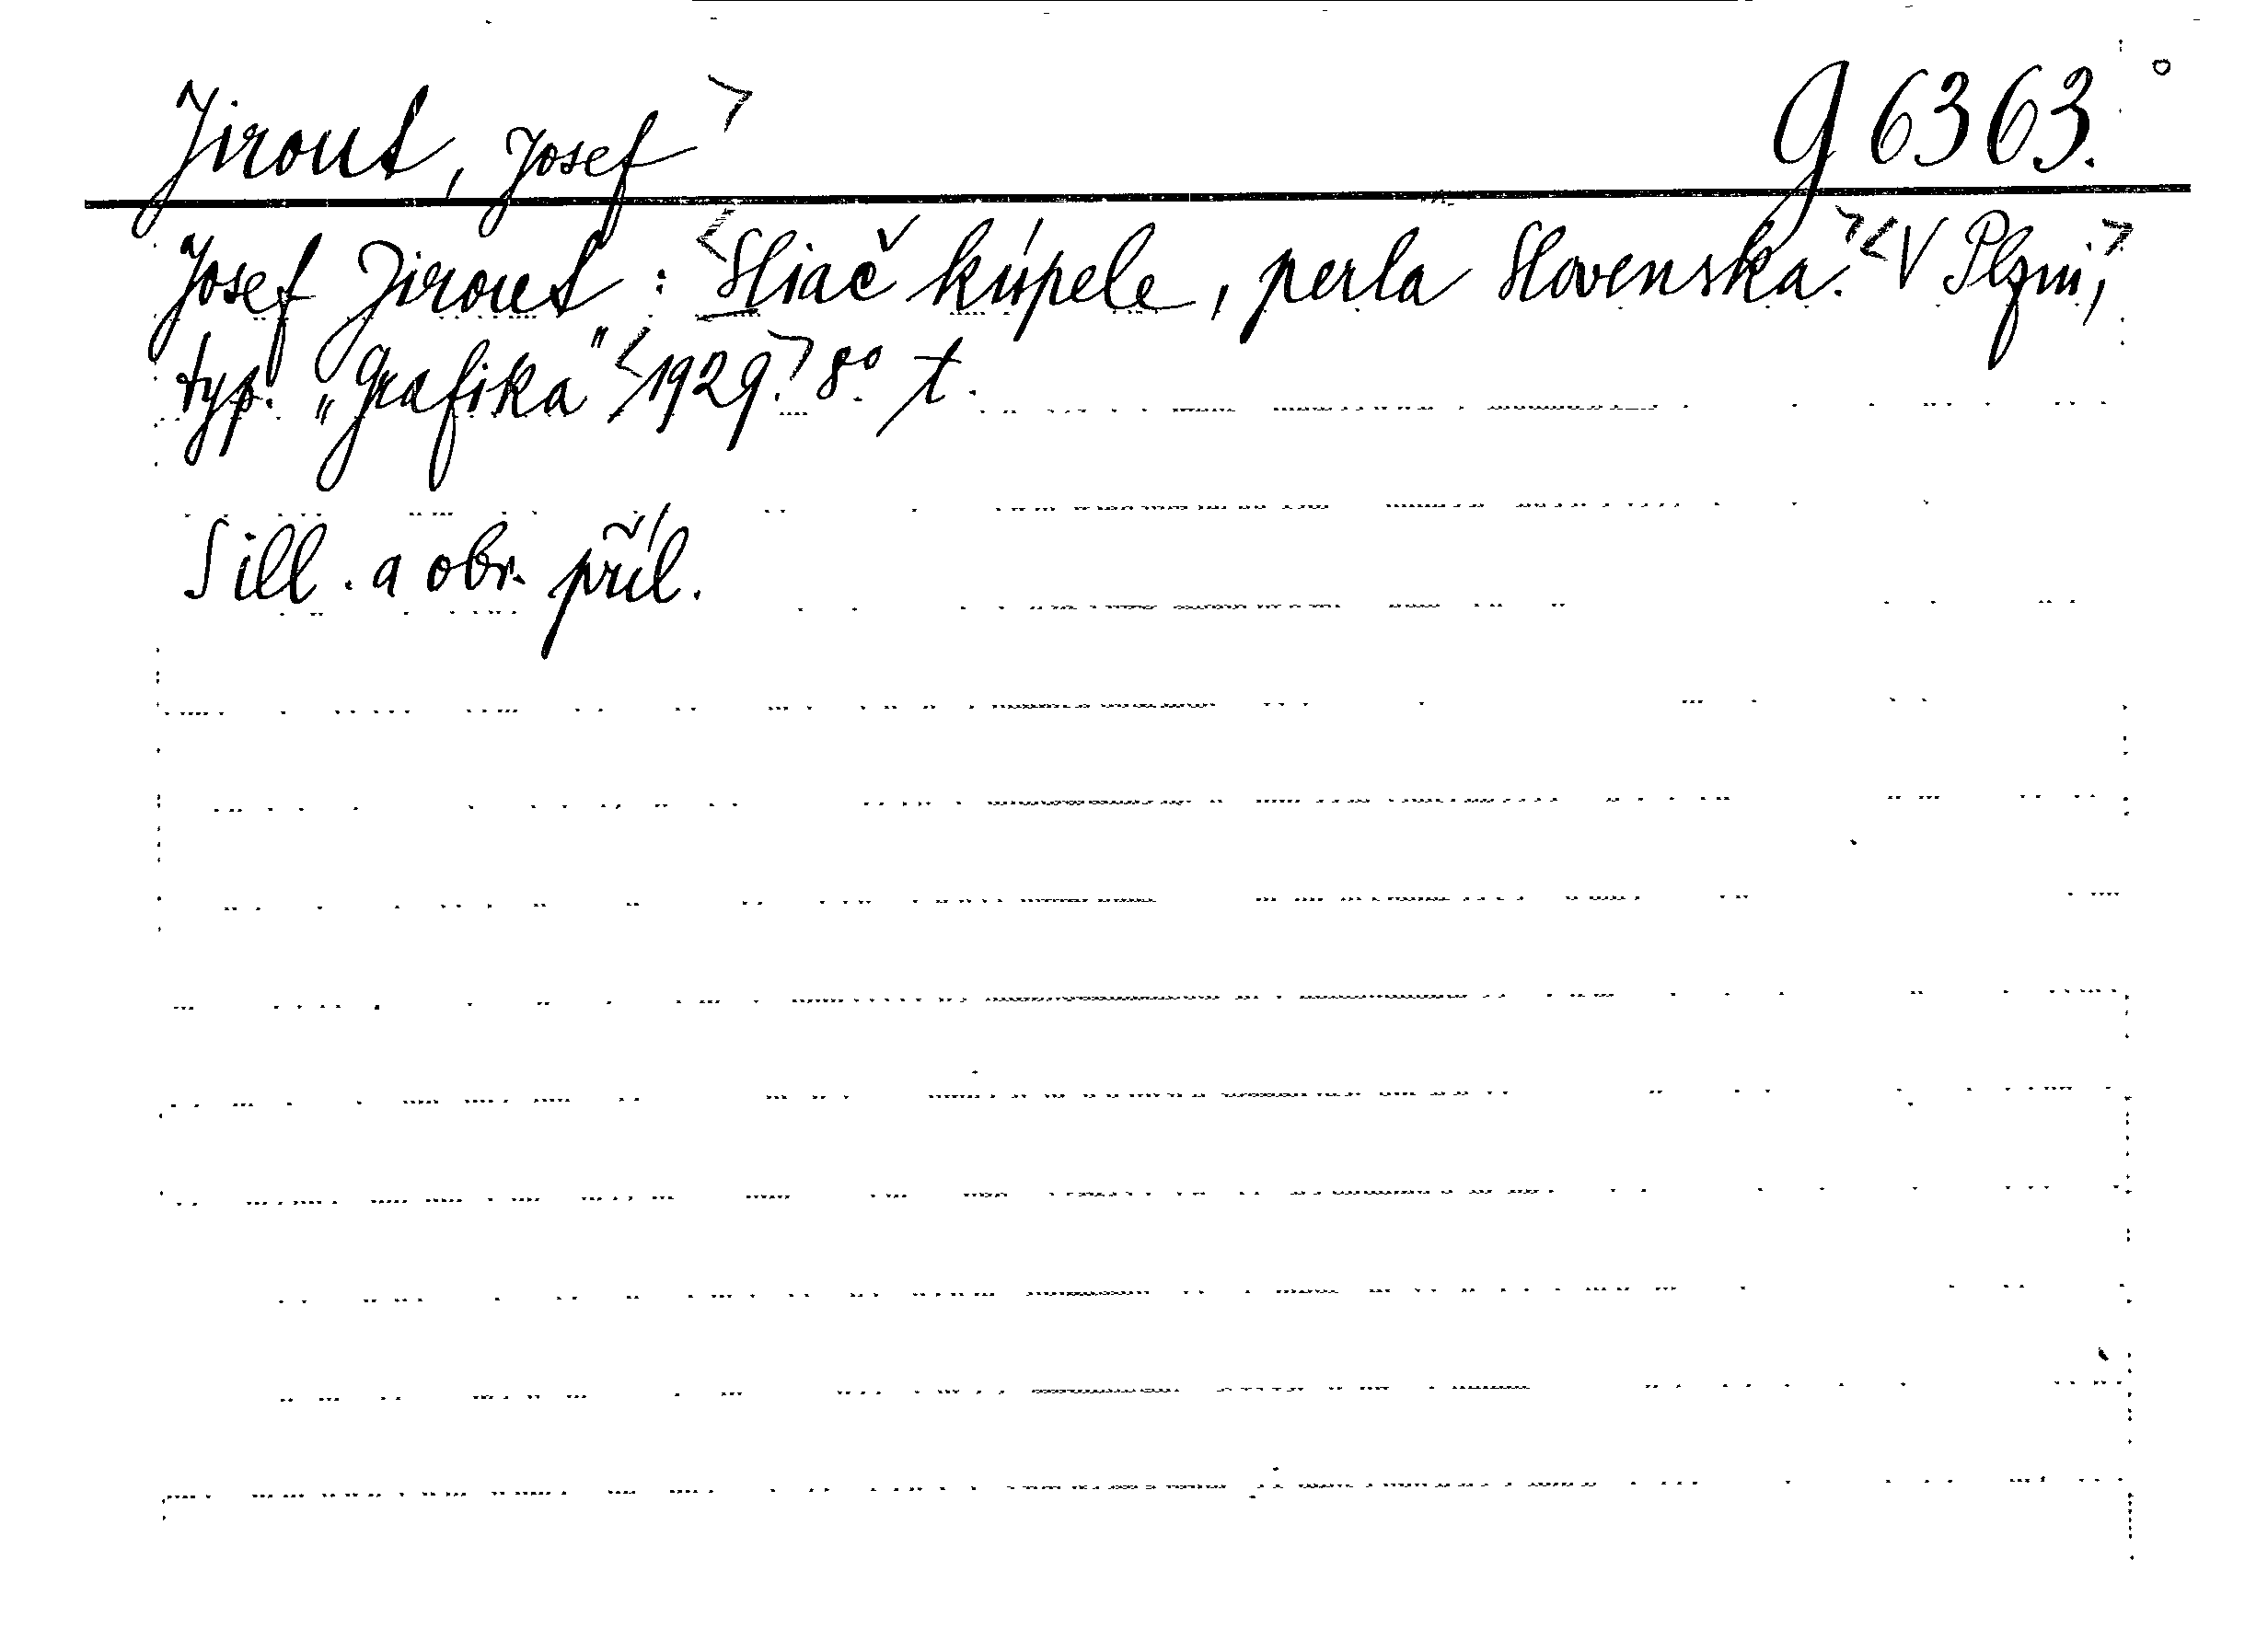 Jirout, Josef > g 6363.
Josef Jirout : <Sliač kúpele, perla Slovenska.> <V Plzni,>
typ. „Grafika" <1929.> 8° t.
S ill. a obr. příl.